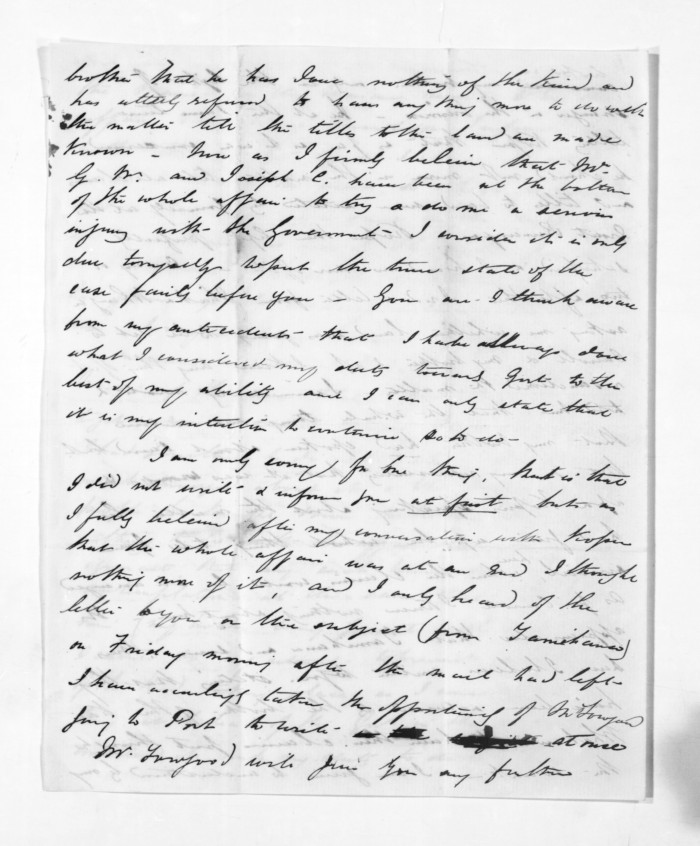 brother that he has done nothing of the kind and
has utterly refused to have anything more to do with
the matter till the titles to the land are made
Known - Now as I firmly believe that Mr.
G. W. and Joseph C. have been at the bottom
of the whole affair to try & do me a serious
injury with the Government I consider it is only
due to myself to put the true state of the
case fairly before you - You are I think aware
from my antecedents that I have always done
what I considered my duty toward Govt to the
best of my ability and I can only state that
it is my intention to continue so to do -
I am only sorry for one thing, that is that
I did not write & inform you at first but as
I fully believed after my conversation with
that the whole affair was at an end I thought
nothing more of it, and I only heard of the
letter to you on this subject (from Tamihana)
on Friday morning after the mail had left -
I have accordingly taken the opportunity of
going to Port to write - at once
Mr. will give you any further